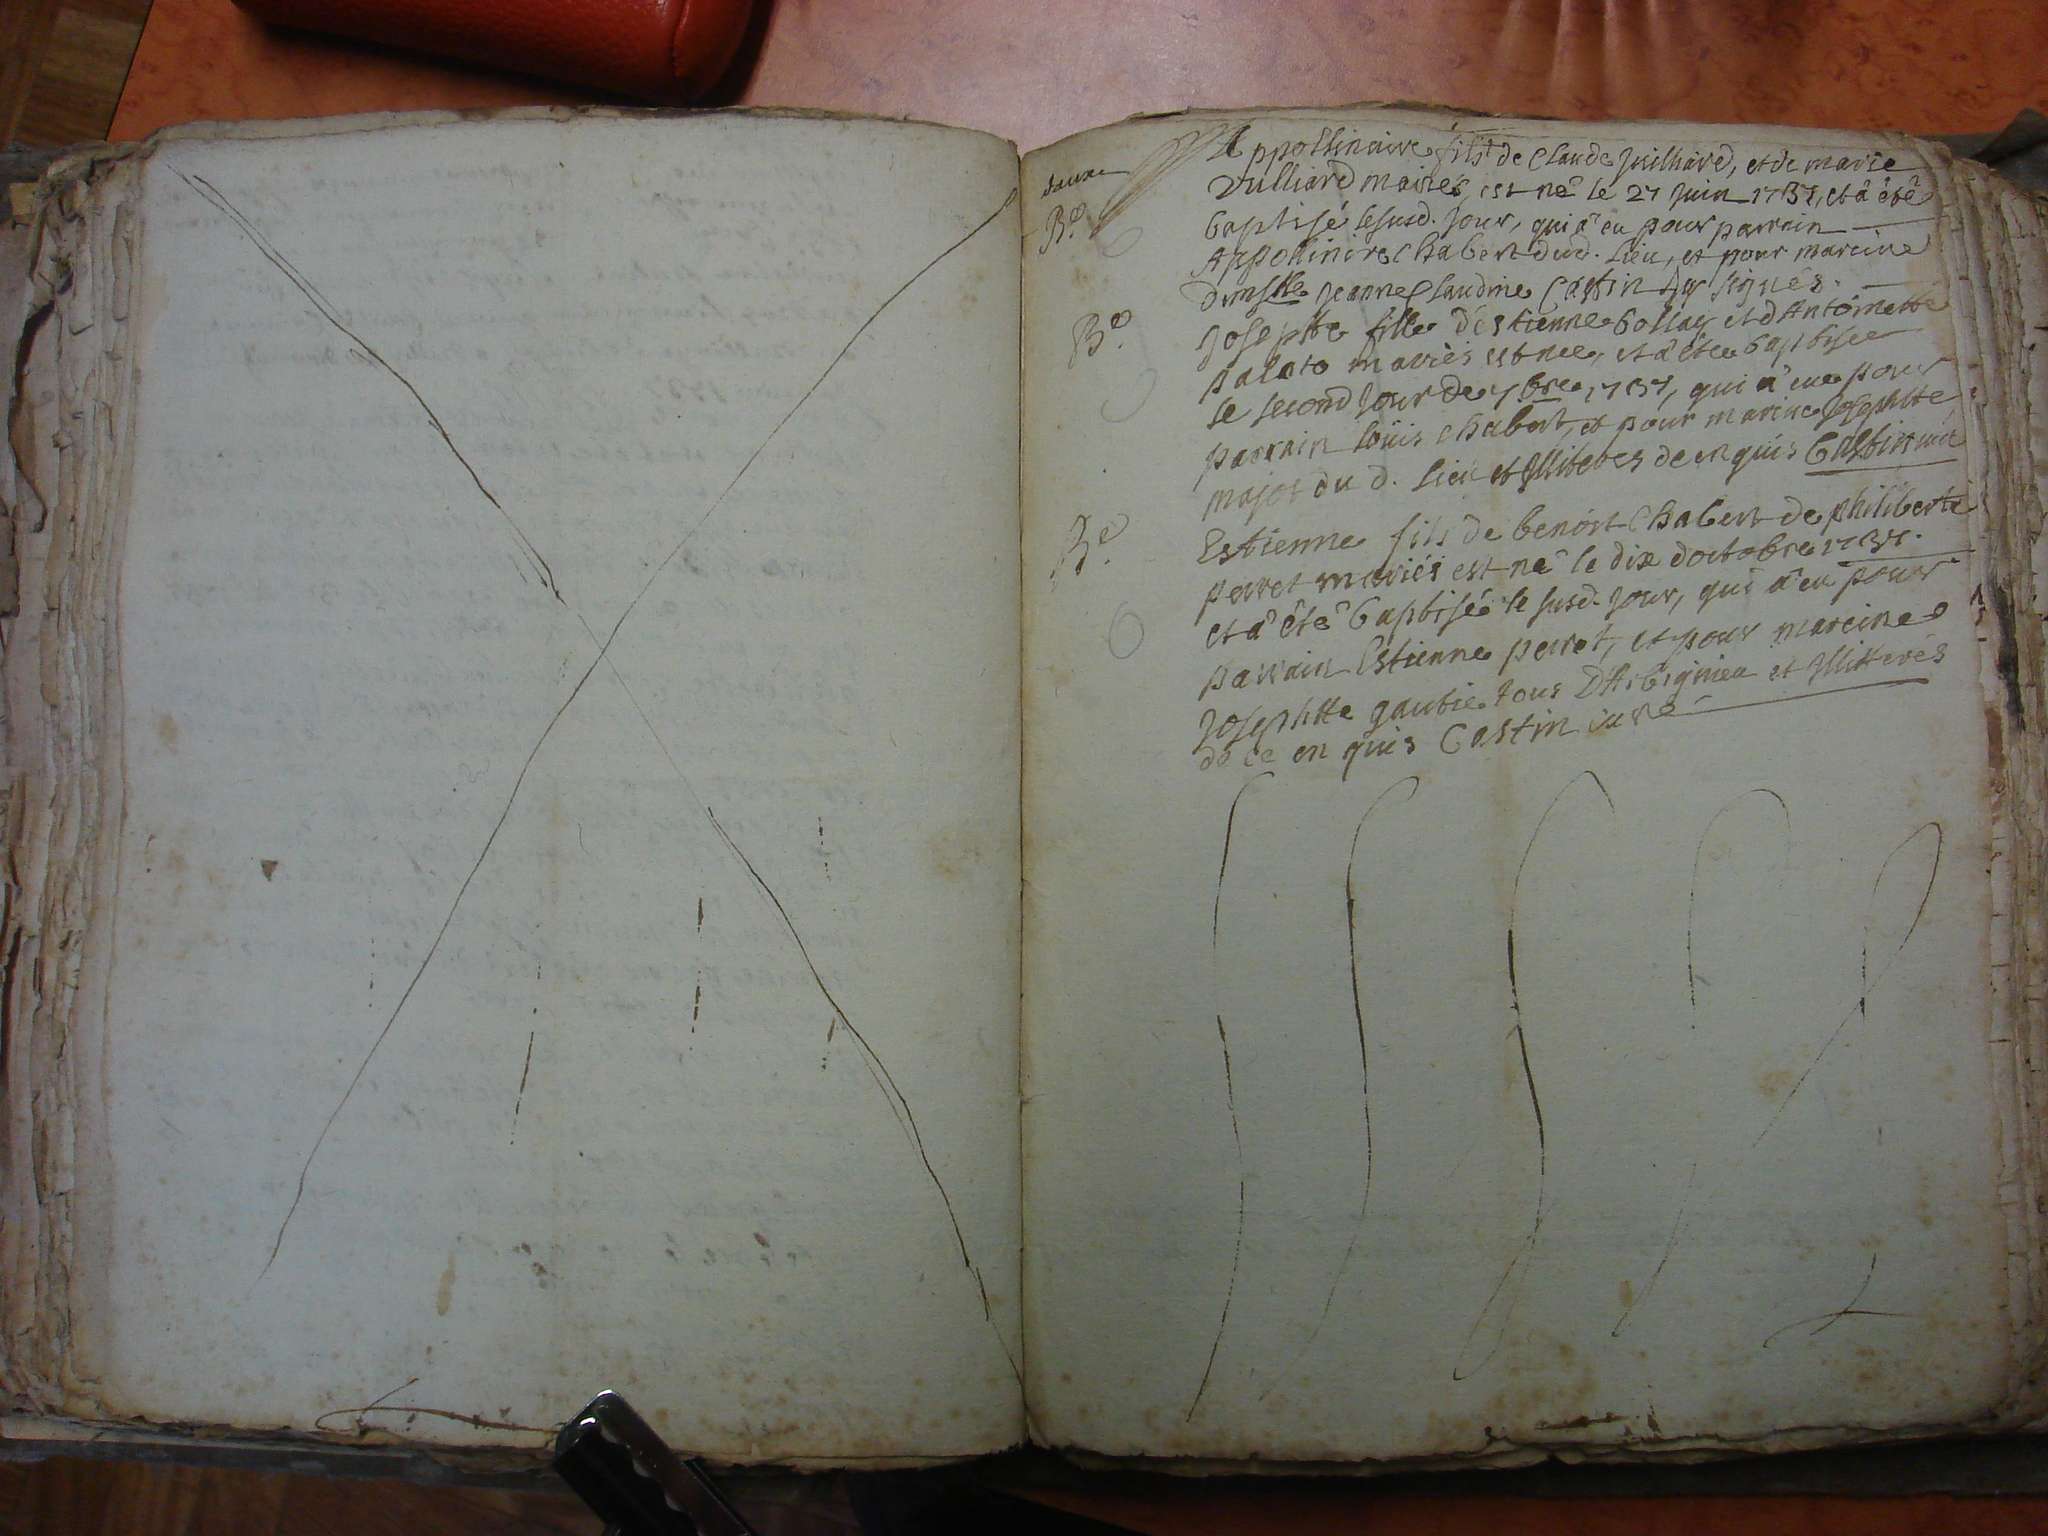 Appollinaire fils de Claude Juilliard, et de marie
Vulliard mariés est né le 27 Juin 1737, et â êtê
baptisé le susd. Jour, qui â eu pour parrain
Appolinire Chabert dud. Lieu, et pour mareine
Dmslle Jeanne Claudine Castin signés.
Be
Josephte fille d'estienne bollay et d'Antoinette
mariés est neé, et â êtée baptisée
le second Jour de 7bre 1737, qui â eue pour
parrain loüis Chabert, et pour mareine Josephtte
major du d. Lieu et Illiteres de en quis Castin curé
Be
Estienne fils de benoit Chabert de philiberte
perret mariés est né le dix d'octobre 1737.
et â êtê baptisé le susd. Jour, qui â eu pour
parrain Estienne perret, et pour mareine
Josephtte gaubie tous D'Arbignieu et Illitterés
de ce en quis Castin curé
Be